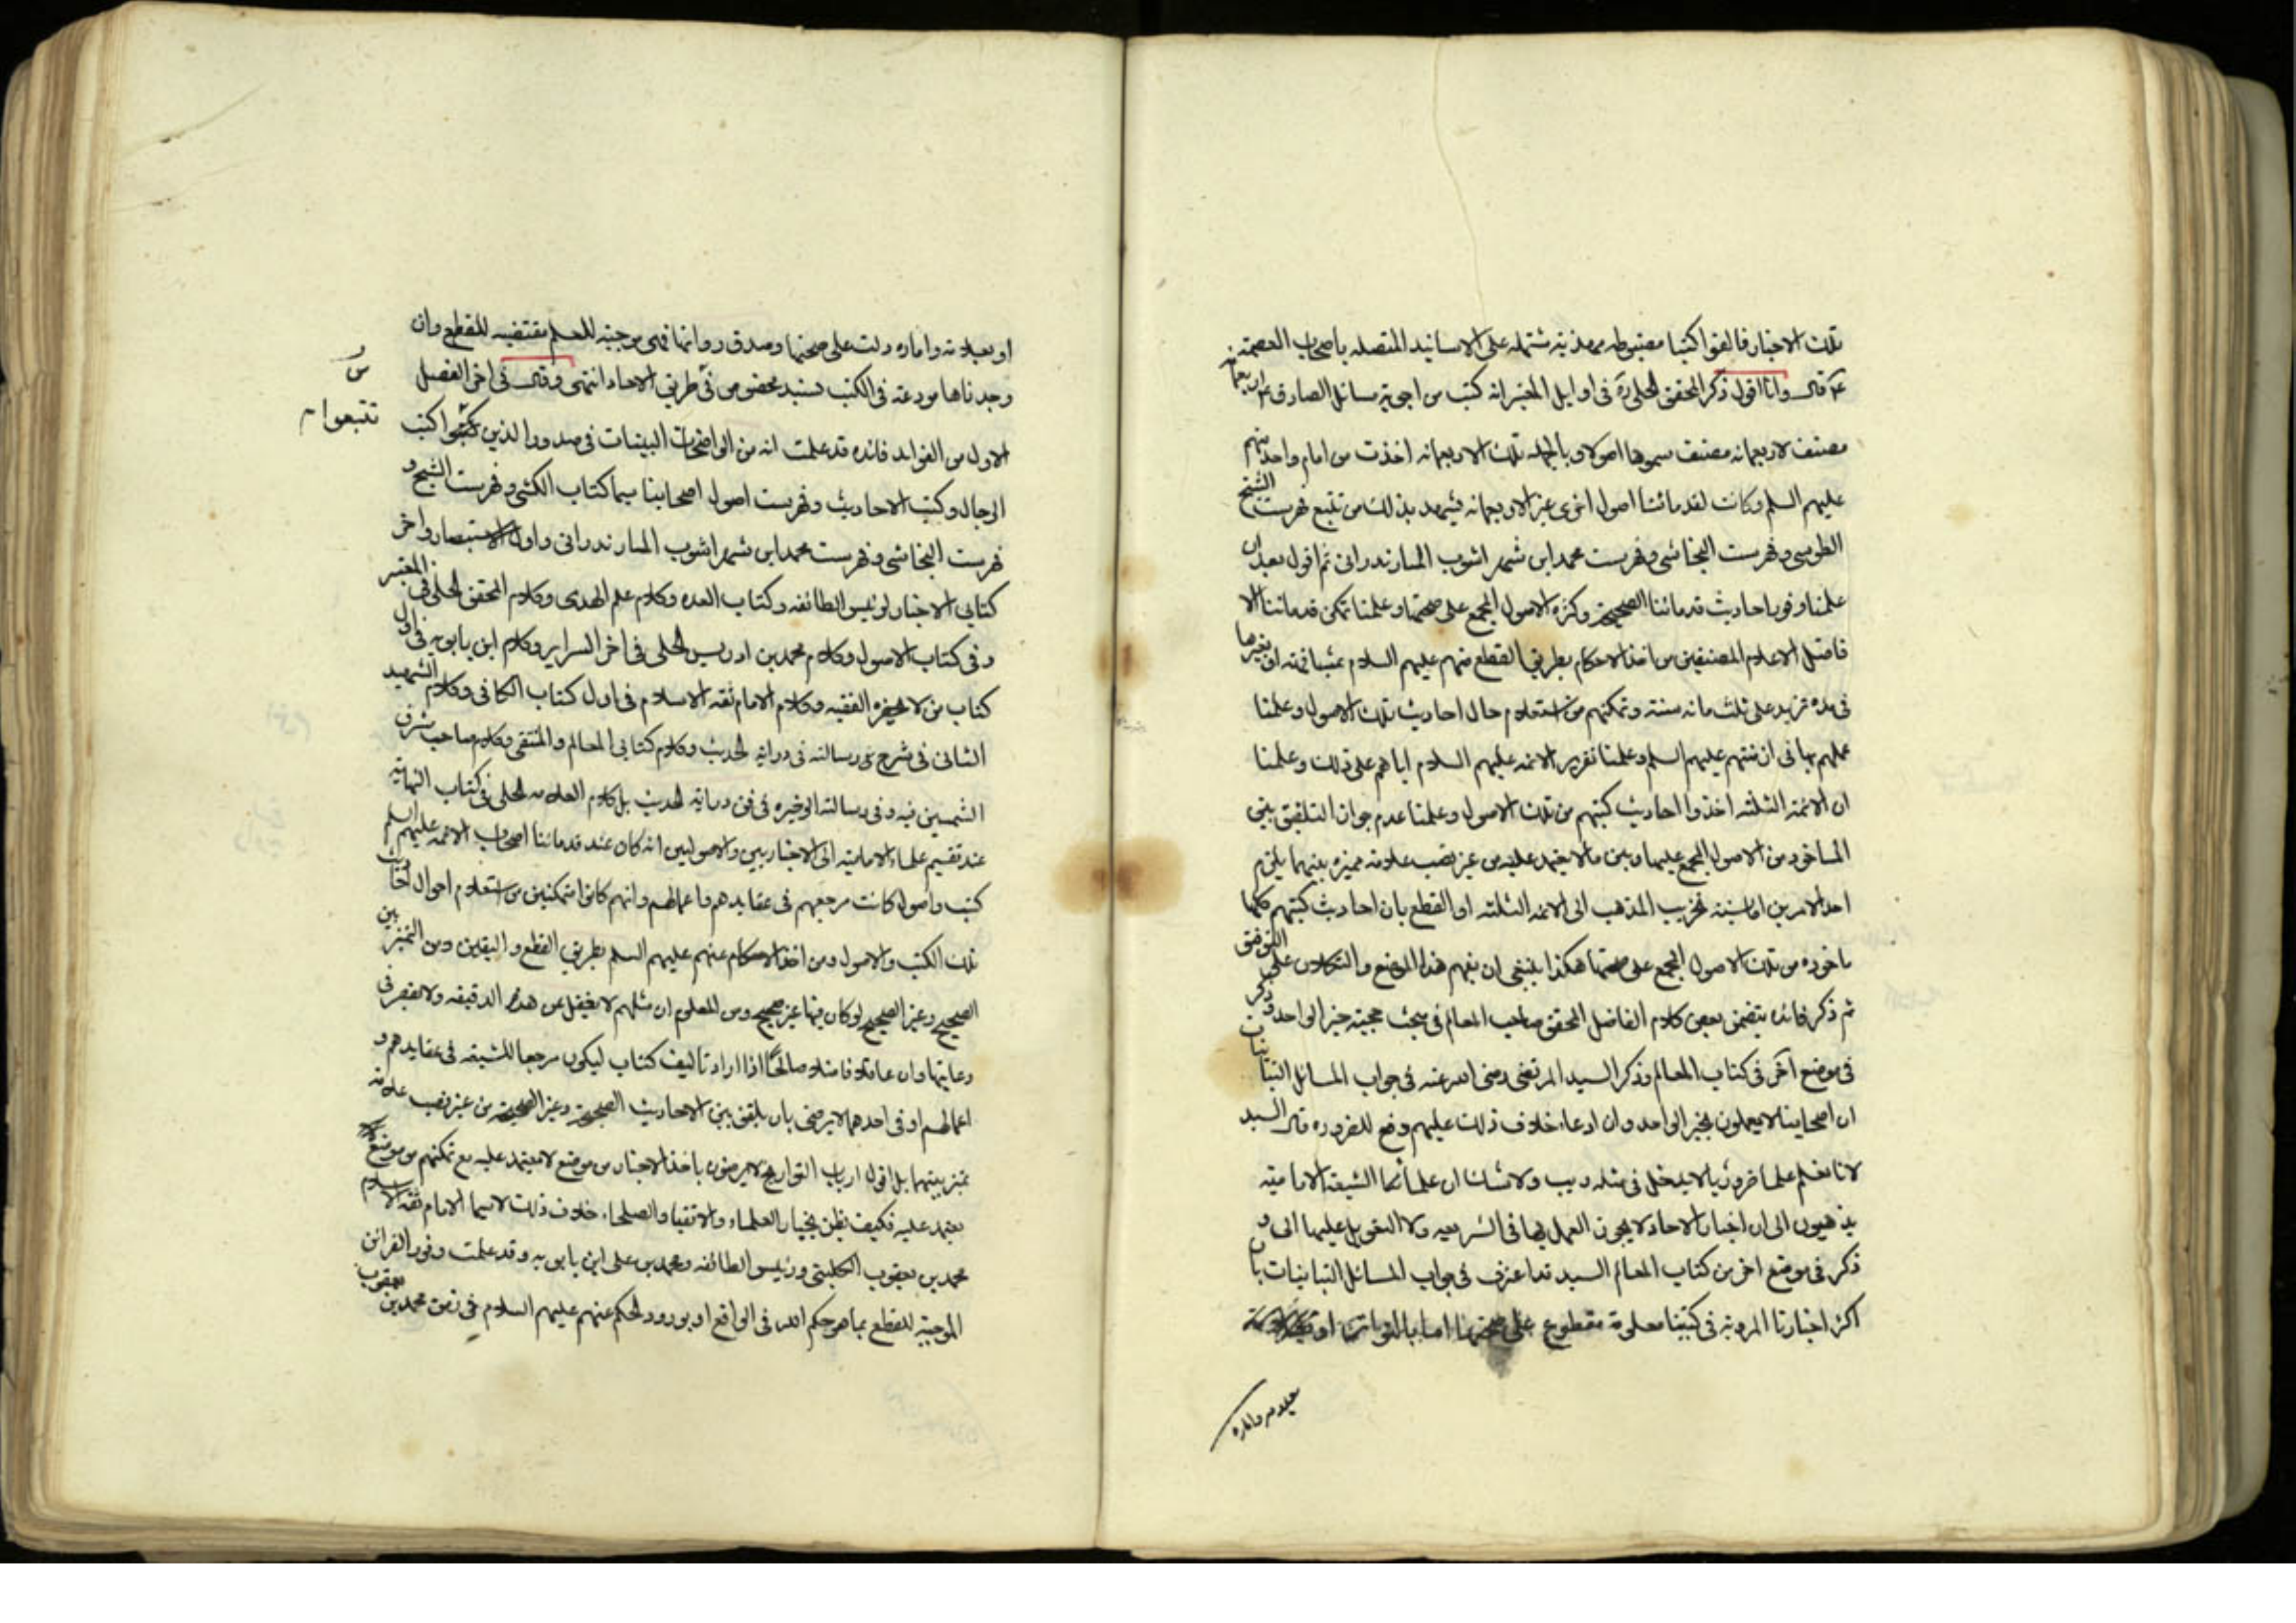 تلك الاخبار فالفوا كتبا مضبوطه مهذبة مشتمله على الاسانيد المتصله باصحاب العصمة
ع قال وانا اقول ذكر المحقق الحلي ره فى اوايل المعتبر انه كتب من اجوبة مسائل الصادق ع اربعمائة
مصنف لاربعمائه مصنف سموها اصولا وبالجمله تلك الاربعمائه اخذت من امام واحد منهم
عليهم السلم وكانت لقدمائنا اصول اخرى غير الاربعمائه فيشهد بذلك من تتبع فهرست الشيخ
الطوسى وفهرست النجاشى وفهرست محمد ابن شهر اشوب المازندرانى ثم اقول بعد ان
علمنا وفور احاديث قدمائنا الصحيحة وكثرة الاصول المجمع على صحتها وعلمنا تمكن قدمائنا الا
فاضل الاعلام المصنفين من اخذ الاحكام بطريق القطع منهم عليهم السلام بمشافهته او بغيرها
فى مده تزيد على ثلث مائه سنته وتمكنهم من استعلام حال احاديث تلك الاصول وعلمنا
عملهم بها فى ازمنتهم عليهم السلم وعلمنا تقرير الائمه عليهم السلام اياهم على ذلك وعلمنا
ان الائمة الثلثه اخذوا احاديث كتبهم من تلك الاصول وعلمنا عدم جواز التلفيق بين
الماخوذ من الاصول المجمع عليها وبين ما لا يعتمد عليه من غير نصب علامه مميزه بينهما يلزم
احد الامرين اما نسبة تخريب المذهب الى الائمه الثلثه او القطع بان احاديث كتبهم كلها
ماخوذه من تلك الاصول المجمع على صحتها هكذا ينبغى ان يفهم هذا الموضع والتكلان على التوفيق
ثم ذكر فائده يتضمن بعض كلام الفاضل المحقق صاحب المعالم فى بحث حجية خبر الواحد وذكر
فى موضع اخر فى كتاب المعالم وذكر السيد المرتضى رضى الله عنه فى جواب المسائل التبانيات
ان اصحابنا لا يعملون بخبر الواحد وان ادعاء خلاف ذلك عليهم دفع للضروره قال السيد
لانا نعلم علما ضروريا لا يدخل فى مثله ريب ولا شك ان علمائنا الشيعة الامامية
يذهبون الى ان اخبار الاحاد لا يجوز العمل بها فى الشريعه ولا التعويل عليها الى و
ذكر فى موضع اخر من كتاب المعالم السيد قد اعترف فى جواب المسائل التبانيات بان
اكثر اخبارنا المرويه فى كتبنا معلومة مقطوع على صحتها اما بالتواتر او
علامه واماره
او بعلامه واماره دلت على صحتها وصدق رواتها فهى موجبة للعلم مقتضيه للقطع وان
وجدناها مودعه فى الكتب بسند مخصوص من طريق الاحاد انتهى وقال فى اخر الفصل
الاول من الفوايد فائده قد علمت انه من الواضحات البينات فى صدور الذين كتب
تتبعوا
الرجال وكتب الاحاديث وفهرست اصول اصحابنا سيما كتاب الكشى وفهرست الشيخ و
فهرست النجاشى وفهرست محمد ابن شهر اشوب المازندرانى واول الاستبصار واخر
كتابى الاخبار لرئيس الطائفه وكتاب العده وكلام علم الهدى وكلام المحقق الحلى فى المعتبر
وفى كتاب الاصول وكلام محمد بن ادريس الحلى فى اخر السراير وكلام ابن بابويه فى اول
كتاب من لا يحضره الفقيه وكلام الامام ثقه الاسلام فى اول كتاب الكافى وكلام الشهيد
الثانى فى شرح رسالته فى دراية الحديث وكلام كتابى المعالم والمنتقى وكلام صاحب مشرق
الشمسين فيه وفى رسالته الوجيزه فى فن دراية الحديث بل كلام العلامه الحلى فى كتاب النهاية
عند تقسيم علماء الامامية الى الاخباريين والاصوليين انه كان عند قدمائنا اصحاب الائمه عليهم السلم
كتب واصول كانت مرجعهم فى عقايدهم واعمالهم وانهم كانوا متمكنين من استعلام احوال احاديث
تلك الكتب والاصول ومن اخذ الاحكام عنهم عليهم السلم بطريق القطع واليقين ومن التميز بين
الصحيح وغير الصحيح لو كان فيها غير صحيح ومن المعلوم ان مثلهم لا يغفل عن هذه الدقيقه ولا يقصر فى
رعايتها وان عاقلا فاضلا صالحا اذا اراد تاليف كتاب ليكون مرجعا للشيعه فى عقايدهم و
اعمالهم او فى احدهما لا يرضى بان يلفق بين الاحاديث الصحيحة وغير الصحيحة من غير نصب علامه
تميز بينهما بل اقول ارباب التواريخ لا يرضون باخذ الاخبار من موضع لا يعتمد عليه مع تمكنهم من موضع
يعتمد عليه فكيف يظن بخيار العلماء والاتقيا والصلحاء خلاف ذلك لاسيما الامام ثقه الاسلام
محمد بن يعقوب الكلينى ورئيس الطائفه ومحمد بن على ابن بابويه وقد علمت وفور القرائن
الموجبة للقطع بما هو حكم الله فى الواقع او بورود الحكم عنهم عليهم السلام فى زمن محمد بن يعقوب